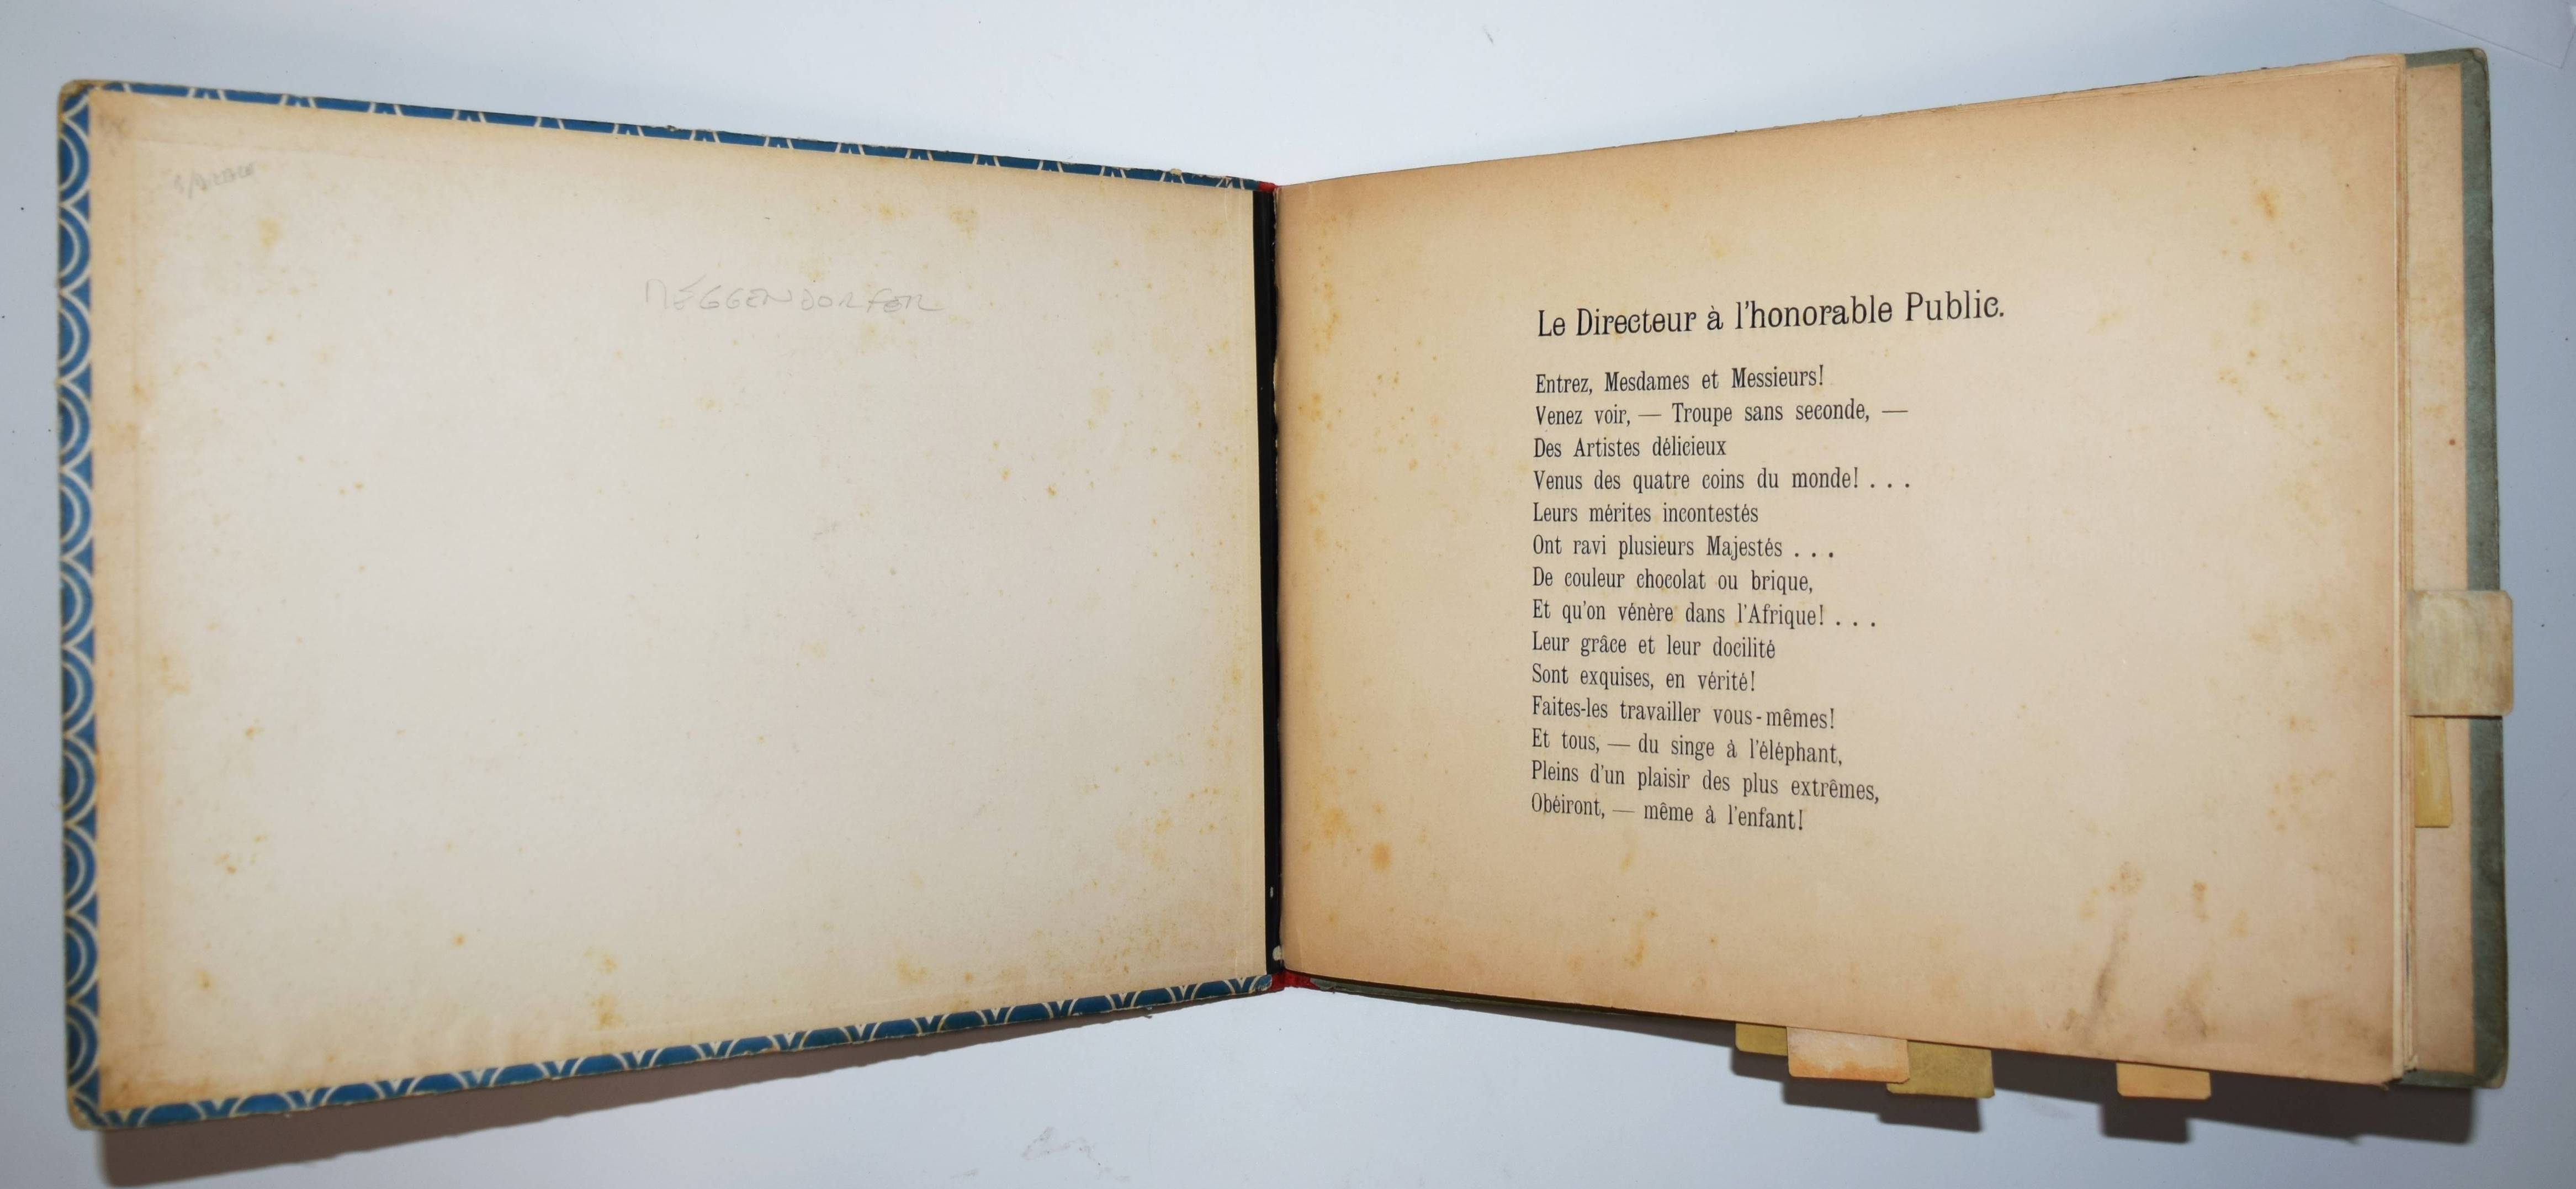 MÉGGENDORFER
Le Directeur à l'honorable Public.
Entrez, Mesdames et Messieurs!
Venez voir, — Troupe sans seconde, —
Des Artistes délicieux
Venus des quatre coins du monde! . . .
Leurs mérites incontestés
Ont ravi plusieurs Majestés . . .
De couleur chocolat ou brique,
Et qu'on vénère dans l'Afrique! . . .
Leur grâce et leur docilité
Sont exquises, en vérité!
Faites-les travailler vous-mêmes!
Et tous, — du singe à l'éléphant,
Pleins d'un plaisir des plus extrêmes,
Obéiront, — même à l'enfant!